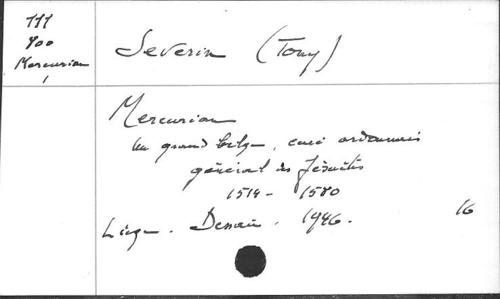 111
400
Mercurian
1
Severin (Tony)
Mercurian
Un grand belge, curé ardennais
général des Jésuites
1514 - 1580
Liège. Dessain. 1946.
16